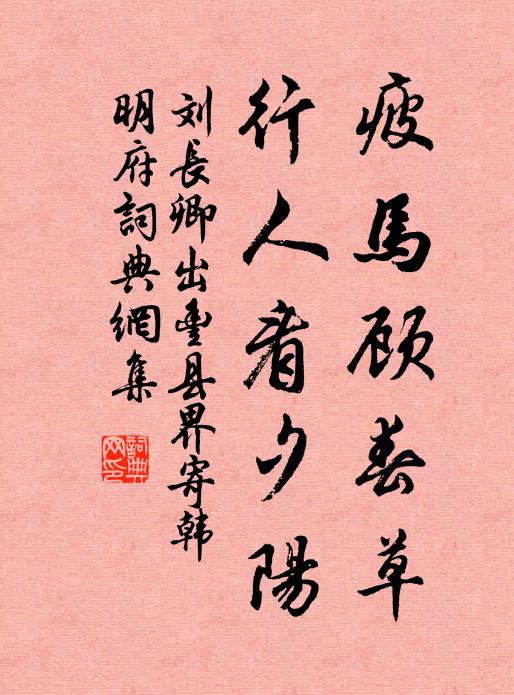 疲馬顾春草
行人看夕陽
刘長卿出豊县界寄韩
明府詞典網集
詞典
网印